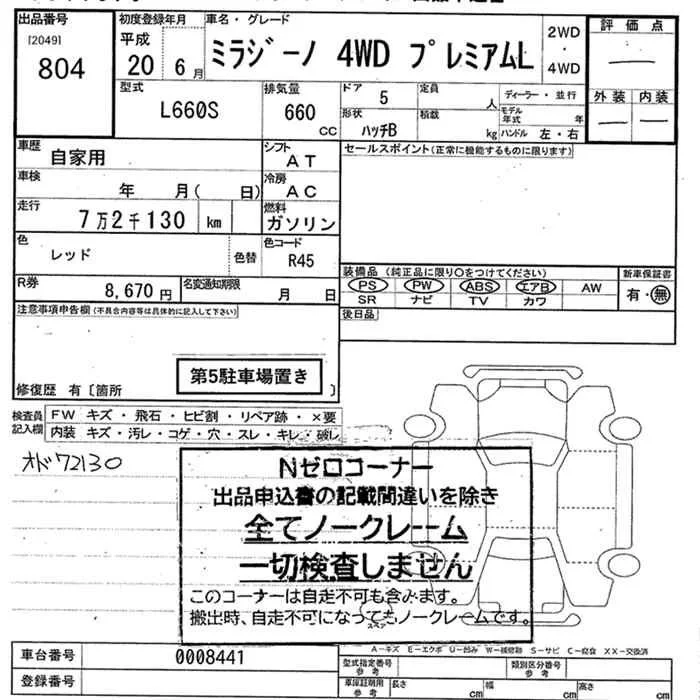 出品番号
[2049]
804
初度登録年月
平成
20 6月
車名・グレード
ミラジーノ 4WD プレミアムL
2WD
・
4WD
評価点
外装 内装
型式
L660S
排気量
660
CC
ドア
5
定員
人
ディーラー・並行
形状
ハッチB
積載
kg
モデル年式 年
ハンドル 左・右
車歴
自家用
シフト
AT
セールスポイント(正常に機能するものに限ります)
車検
年 月( 日)
冷房
AC
走行
7万2千130 km
燃料
ガソリン
色
レッド
色替
色コード
R45
R券
8,670円
名変通知期限
月 日
装備品 (純正品に限り○をつけてください)
PS PW ABS エアB AW
SR ナビ TV カワ
新車保証書
有・無
後日品
注意事項申告欄(不具合内容等は具体的に記入して下さい)
第5駐車場置き
修復歴 有〔箇所 〕
検査員記入欄
FW キズ・飛石・ヒビ割・リペア跡・×要
内装 キズ・汚レ・コゲ・穴・スレ・キレ・破レ
オド72130
Nゼロコーナー
出品申込書の記載間違いを除き
全てノークレーム
一切検査しません
このコーナーは自走不可も含みます。
搬出時、自走不可になってもノークレームです。
スペア
A-キズ E-エクボ U-凹み W-補修跡 S-サビ C-腐食 XX-交換済
車台番号
0008441
登録番号
型式指定番号
参考
類別区分番号
参考
車庫証明用
参考
長さ
cm
幅
cm
高さ
cm